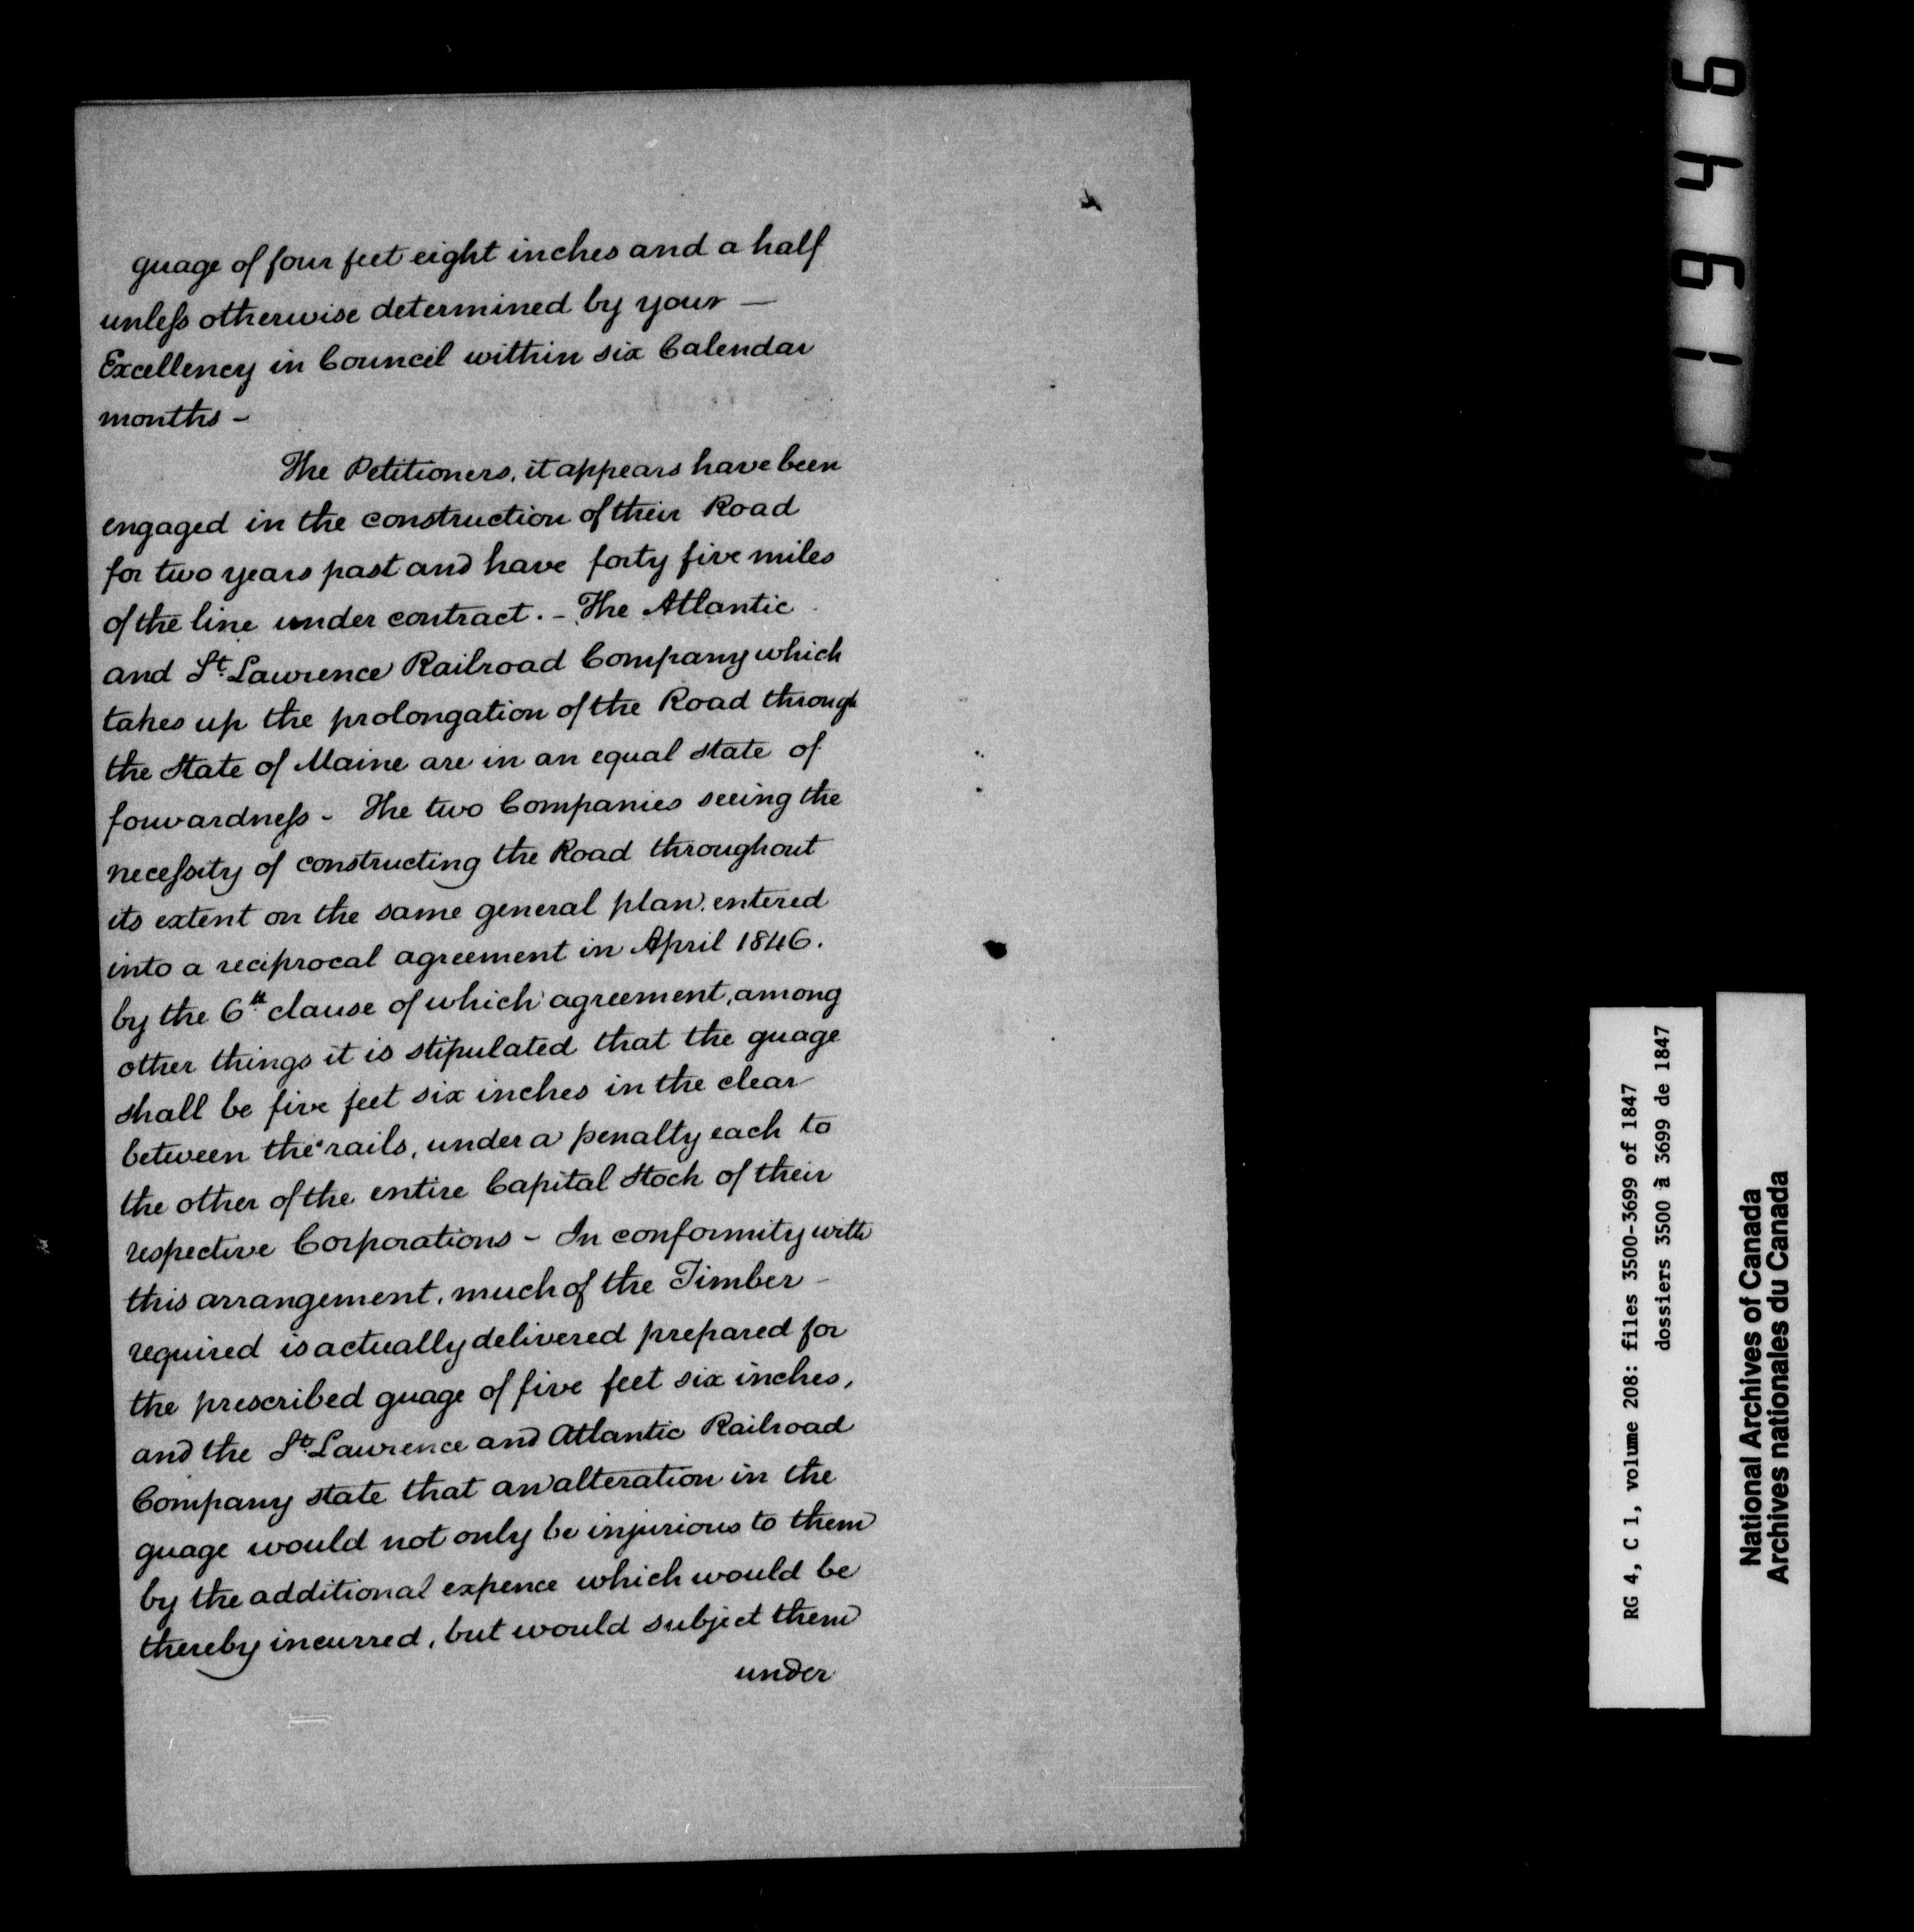 guage of four feet eight inches and a half
unless otherwise determined by your —
Excellency in Council within six Calendar
months -
The Petitioners, it appears have been
engaged in the construction of their Road
for two years past and have forty five miles
of the line under contract. - The Atlantic
and St. Lawrence Railroad Company which
takes up the prolongation of the Road through
the State of Maine are in an equal state of
forwardness - The two Companies seeing the
necessity of constructing the Road throughout
its extent on the same general plan, entered
into a reciprocal agreement in April 1846.
by the 6th clause of which agreement, among
other things it is stipulated that the guage
shall be five feet six inches in the clear
between the rails, under a penalty each to
the other of the entire Capital Stock of their
respective Corporations - In conformity with
this arrangement, much of the Timber -
required is actually delivered prepared for
the prescribed guage of five feet six inches,
and the St. Lawrence and Atlantic Railroad
Company state that an alteration in the
guage would not only be injurious to them
by the additional expence which would be
thereby incurred, but would subject them
under
RG 4, C 1, volume 208: files 3500-3699 of 1847
dossiers 3500 à 3699 de 1847
National Archives of Canada
Archives nationales du Canada